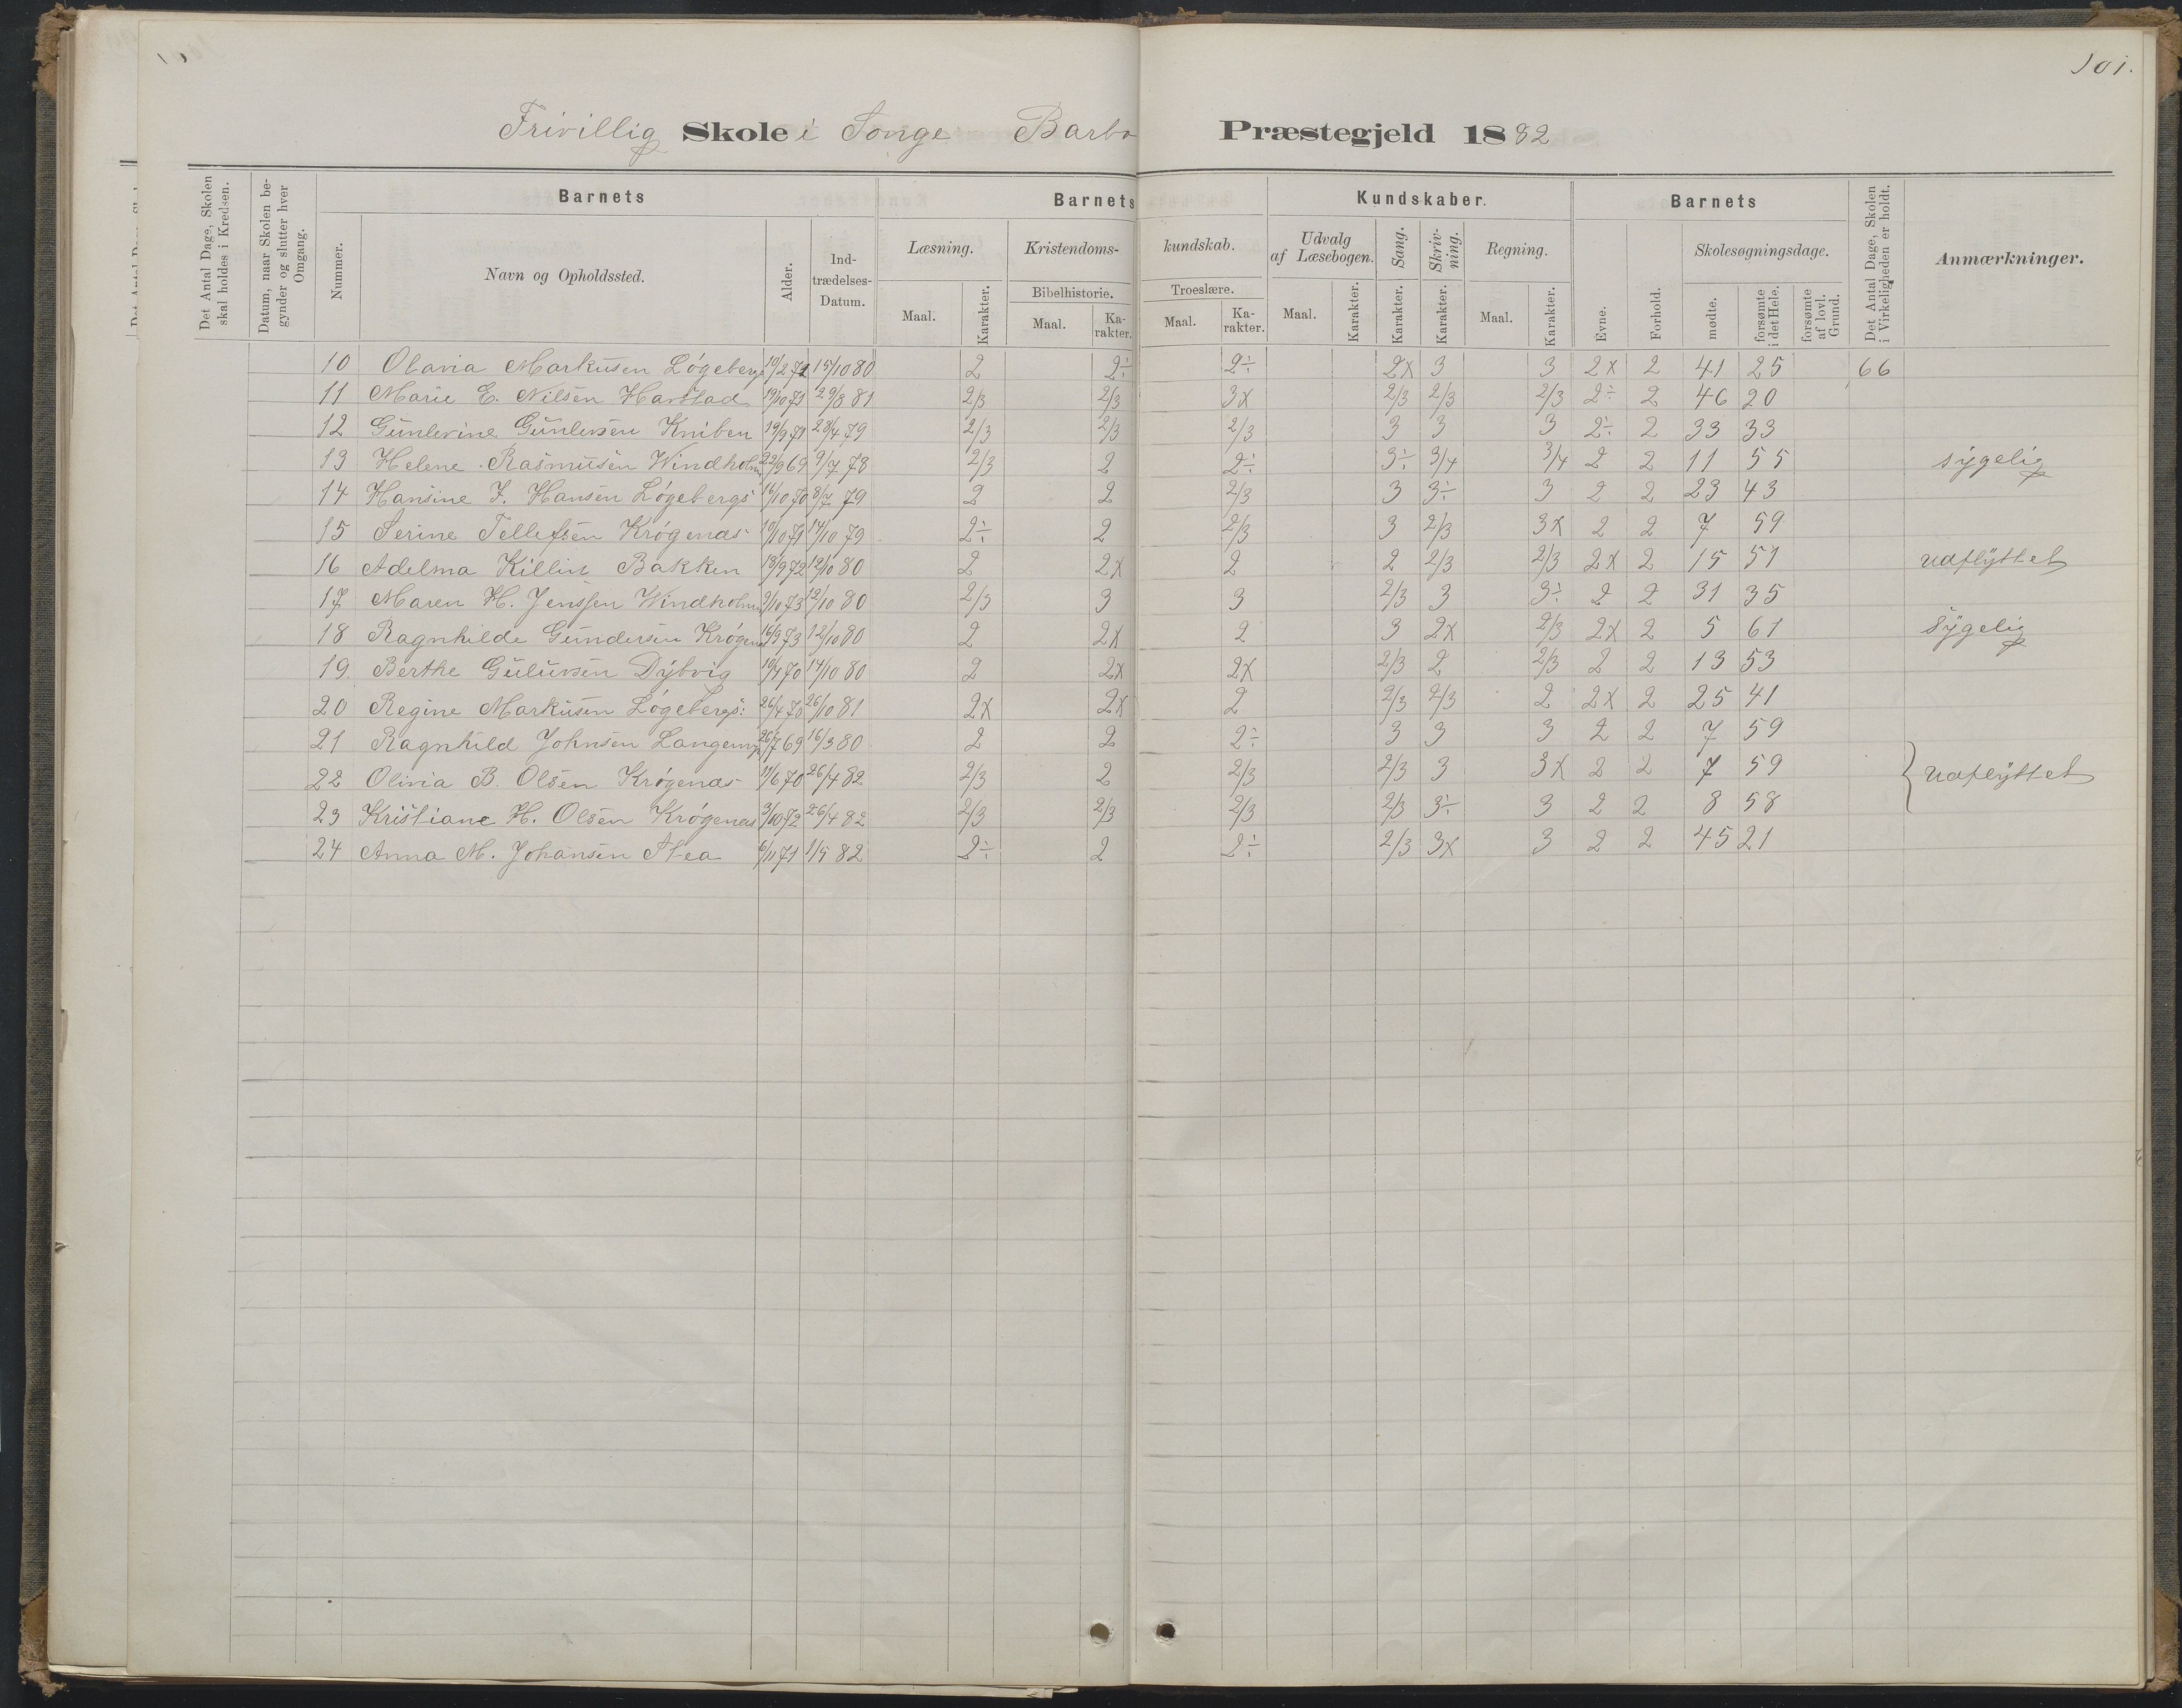 101.
Frivillig Skole i Songe Barbo Præstegjeld 1882
Det Antal Dage, Skolen skal holdes i Kredsen.
Datum, naar Skolen begynder og slutter hver Omgang.
Barnets
Nummer.
Navn og Opholdssted.
Alder.
Indtrædelses-Datum.
Barnets Kundskaber.
Læsning.
Maal.
Karakter.
Kristendoms-kundskab.
Bibelhistorie.
Maal.
Karakter.
Troeslære.
Maal.
Karakter.
Udvalg af Læsebogen.
Maal.
Karakter.
Sang.
Karakter.
Skrivning.
Karakter.
Regning.
Maal.
Karakter.
Barnets
Evne.
Forhold.
Skolesøgningsdage.
mødte.
forsømte i det Hele.
forsømte af lovl. Grund.
Det Antal Dage, Skolen i Virkeligheden er holdt.
Anmærkninger.
10 Olavia Markusen Løgebergs 10/2 71 15/10 80 2 2÷ 2÷ 2x 3 3 2x 2 41 25 66
11 Marie E. Nilsen Harstad 19/10 71 29/8 81 2/3 2/3 3x 2/3 2/3 2/3 2÷ 2 46 20
12 Gunlevine Gunlevsen Kniben 19/9 71 28/4 79 2/3 2/3 2/3 3 3 3 2÷ 2 33 33
13 Helene Rasmusen Windholm 22/9 69 9/7 78 2/3 2 2÷ 3÷ 3/4 3/4 2 2 11 55 sygelig
14 Hansine J. Hansen Løgebergs 16/10 70 8/7 79 2 2 2/3 3 3÷ 3 2 2 23 43
15 Serine Tellefsen Krøgenæs 10/10 71 14/10 79 2÷ 2 2/3 3 2/3 3x 2 2 7 59
16 Adelma Killin Bakken 18/9 72 12/10 80 2 2x 2 2 2/3 2/3 2x 2 15 51 udflyttet
17 Maren H. Jenssen Windholm 9/10 73 12/10 80 2/3 3 3 2/3 3 3÷ 2 2 31 35
18 Ragnhilde Gundersen Krøgenæs 16/9 73 12/10 80 2 2x 2 3 2x 2/3 2x 2 5 61 sygelig
19. Berthe Guluvsen Dybvig 10/4 70 14/10 80 2 2x 2x 2/3 2 2/3 2 2 13 53
20 Regine Markusen Løgebergs: 26/4 70 26/10 81 2x 2x 2 2/3 2/3 2 2x 2 25 41
21 Ragnhild Johnsen 26/7 69 16/3 80 2 2 2÷ 3 3 3 2 2 7 59
22 Olivia B. Olsen Krøgenæs 11/6 70 26/4 82 2/3 2 2/3 2/3 3 3x 2 2 7 59 udflyttet
23 Kristiane H. Olsen Krøgenæs 3/10 72 26/4 82 2/3 2/3 2/3 2/3 3÷ 3 2 2 8 58
24 Anna M. Johansen Stea 6/11 71 1/5 82 2÷ 2 2÷ 2/3 3x 3 2 2 45 21